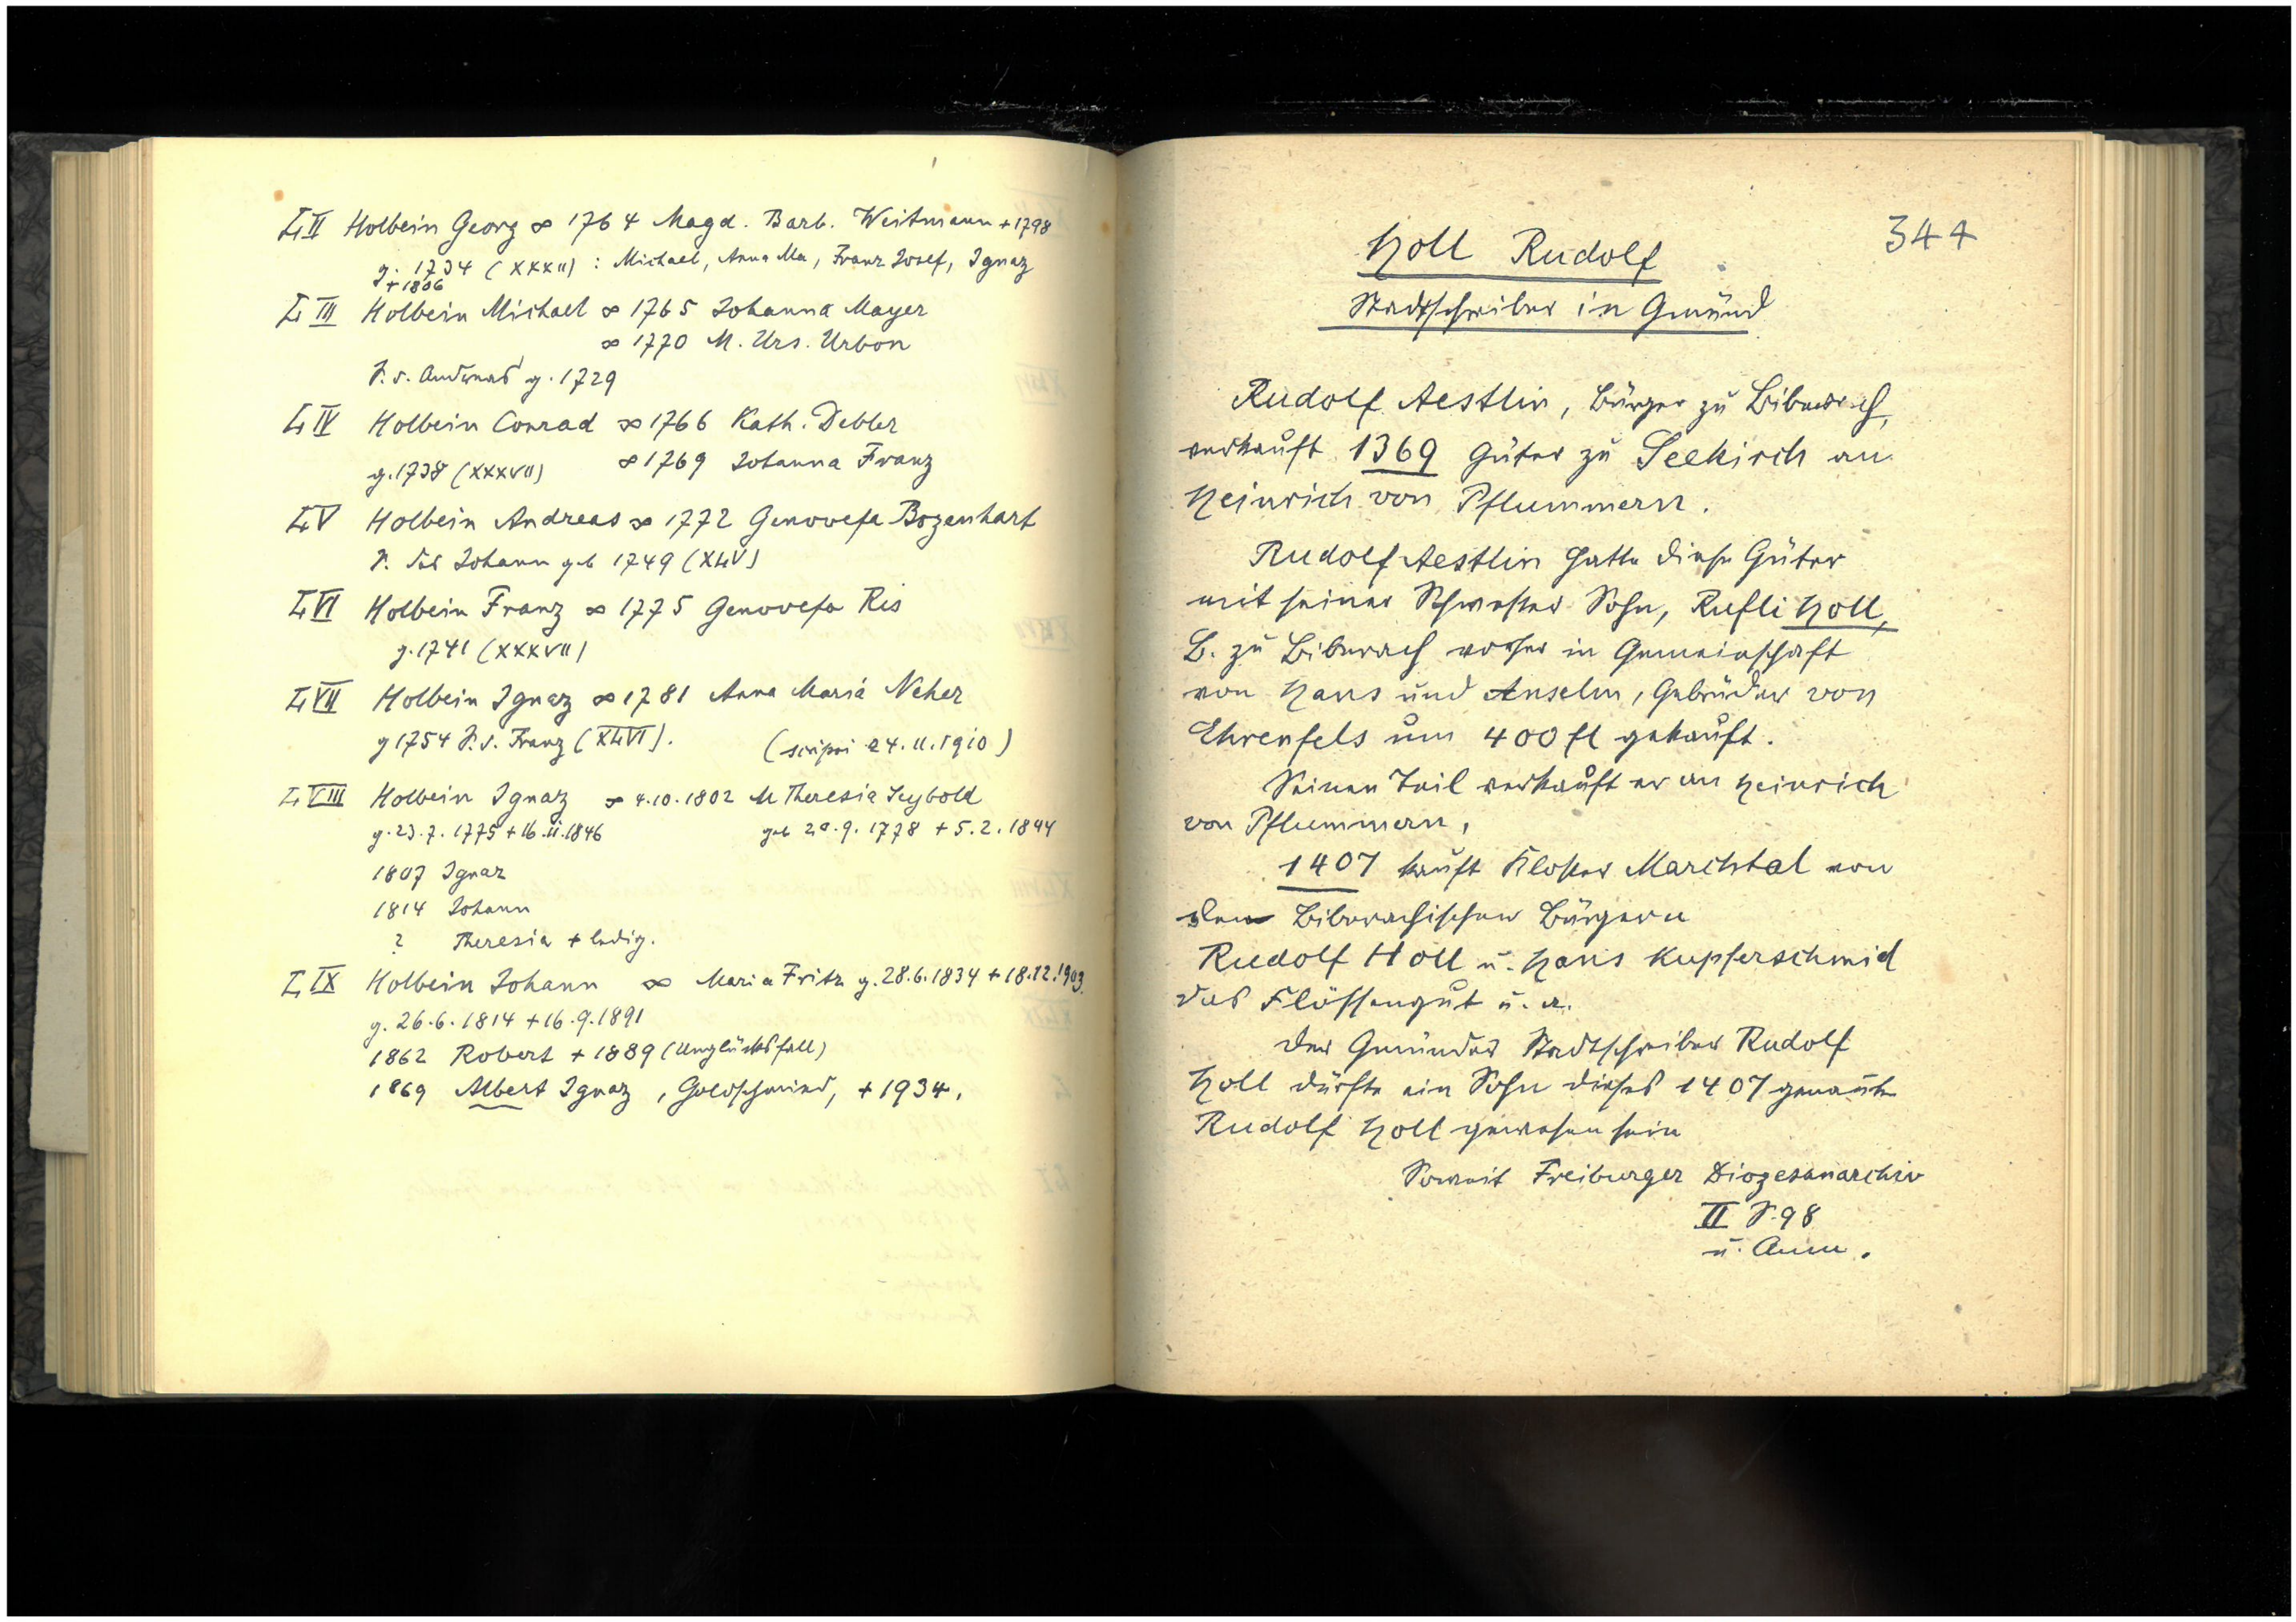 LII Holbein Georg ∞ 1764 Magd. Barb. Weitmann +1798
g. 1734 (XXXII) : Michael, Anna Ma, Franz Josef, Ignaz
+1806
LIII Holbein Michael ∞ 1765 Johanna Mayer
∞ 1770 M. Urs. Urbon
S. d. Andreas g. 1729
LIV Holbein Conrad ∞ 1766 Kath. Debler
g. 1738 (XXXVII) ∞ 1769 Johanna Franz
LV Holbein Andreas ∞ 1772 Genovefa Bozenhart
S. des Johann geb 1749 (XLV)
LVI Holbein Franz ∞ 1775 Genovefa Ris
g. 1741 (XXXVII)
LVII Holbein Ignaz ∞ 1781 Anna Maria Neher
g 1754 S. d. Franz (XLVI). (scripsi 24.11.1910)
LVIII Holbein Ignaz ∞ 4.10.1802 M Theresia Seybold
g. 23.7.1775 + 16.11.1846 geb 20.9.1778 + 5.2.1844
1807 Ignaz
1814 Johann
? Theresia + ledig.
LIX Holbein Johann ∞ Maria Fritz g. 28.6.1834 + 18.12.1903.
g. 26.6.1814 + 16.9.1891
1862 Robert + 1889 (Unglücksfall)
1869 Albert Ignaz, Goldschmied, + 1934.
344
Holl Rudolf
Stadtschreiber in Gmünd
Rudolf Aestlin, Bürger zu Biberach,
verkauft 1369 Güter zu Seekirch an
Heinrich von Pflummern.
Rudolf Aestlin hatte diese Güter
mit seiner Schwester Sohn, Rufli Holl,
B. zu Biberach vorher in Gemeinschaft
von Hans und Anselm, Gebrüder von
Ehrenfels um 400 fl gekauft.
Seinen Teil verkauft er an Heinrich
von Pflummern,
1407 kauft Kloster Marchtal von
den Biberachischen Bürgern
Rudolf Holl u. Hans Kupferschmid
das Flössengut u. a.
Der Gmünder Stadtschreiber Rudolf
Holl dürfte ein Sohn dieses 1407 genannten
Rudolf Holl gewesen sein
Soweit Freiburger Diözesanarchiv
II S. 98
u. Anm.